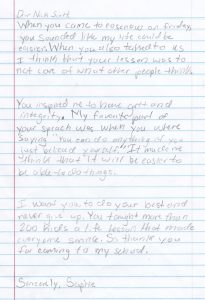 Dear Nick Scott
When you came to rosenow on friday,
you sounded like my life could be
easier. When you also talked to us
I think that your lesson was to
not care of what other people think.
You inspired me to have grit and
integrity. My favorite part of
your speach was when you where
saying "You can do anything if you
just beleud yourself." It makes me
think that it will be easier to
be able to do things.
I want you to do your best and
never give up. You tought more than
200 kid's a life lesson that made
everyone smile. So thank you
for coming to my school.
Sincerly, Sophie